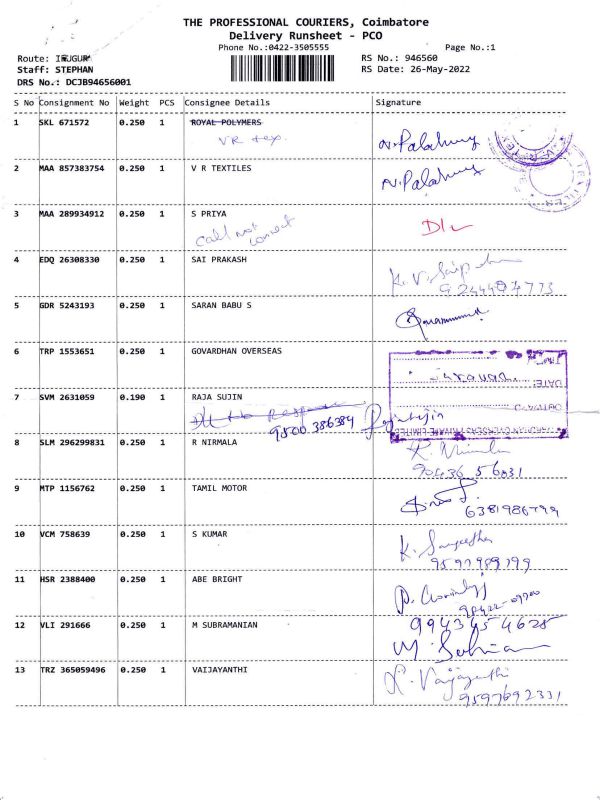 THE PROFESSIONAL COURIERS, Coimbatore
Delivery Runsheet - PCO
Phone No.:0422-3505555 Page No.:1
Route: IRUGUR RS No.: 946560
Staff: STEPHAN RS Date: 26-May-2022
DRS No.: DCJB94656001
S No Consignment No Weight PCS Consignee Details Signature
1 SKL 671572 0.250 1 ROYAL POLYMERS
VR tex. N.Palani
2 MAA 857383754 0.250 1 V R TEXTILES
3 MAA 289934912 0.250 1 S PRIYA
call not connect
4 EDQ 26308330 0.250 1 SAI PRAKASH
5 GDR 5243193 0.250 1 SARAN BABU S
6 TRP 1553651 0.250 1 GOVARDHAN OVERSEAS
DATE:
7 SVM 2631059 0.190 1 RAJA SUJIN
9500 386384
8 SLM 296299831 0.250 1 R NIRMALA
90436 56031
9 MTP 1156762 0.250 1 TAMIL MOTOR
6381986799
10 VCM 758639 0.250 1 S KUMAR
9597989799
11 HSR 2388400 0.250 1 ABE BRIGHT
12 VLI 291666 0.250 1 M SUBRAMANIAN
9943454625
13 TRZ 365059496 0.250 1 VAIJAYANTHI
9597692331